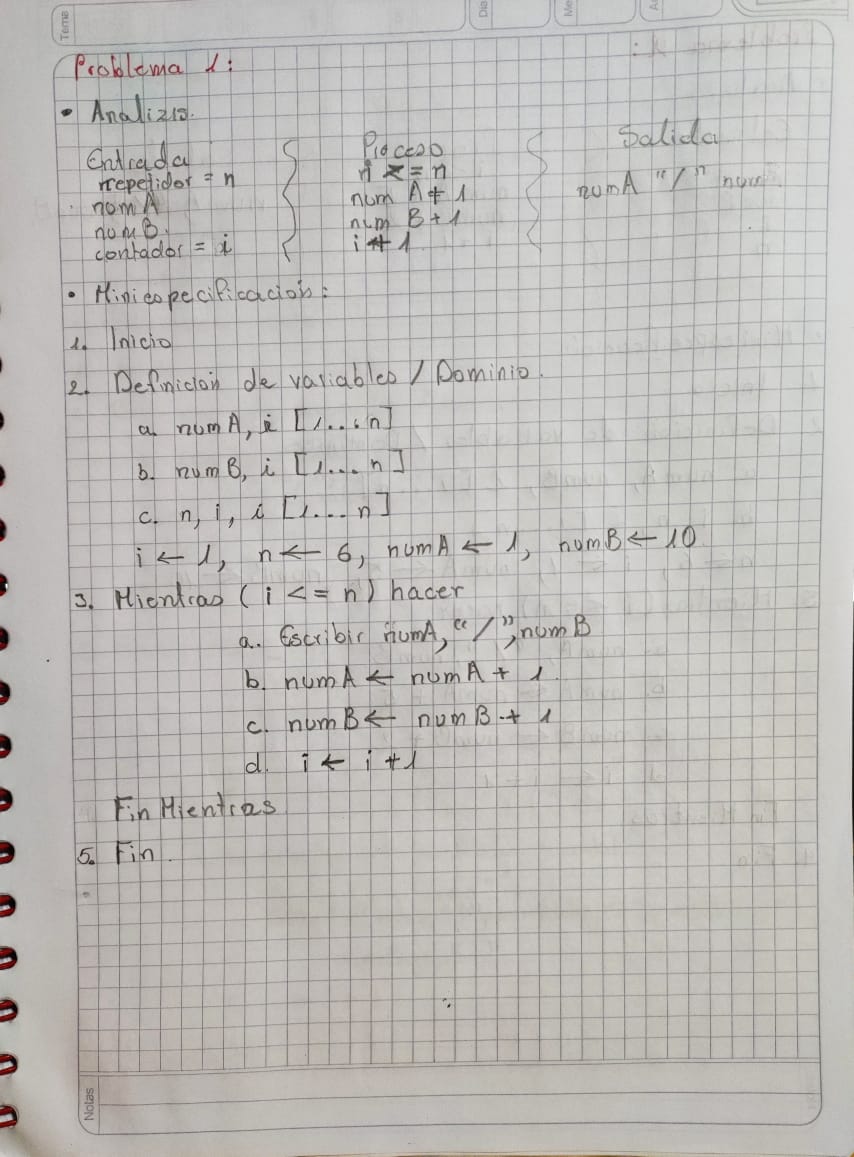 Tema
Dia
Me
Problema 1:
• Analizis.
Entrada
rrepetidor = n
numA
numB
contador = i
Proceso
i <= n
num A + 1
num B + 1
i + 1
Salida
numA "/" num
• Miniespecificación:
1. Inicio
2. Definición de variables / Dominio.
a. numA, i [1...n]
b. numB, i [1... n]
c. n, i, i [1....n]
i ← 1, n ← 6, numA ← 1, numB ← 10
3. Mientras (i <= n) hacer
a. Escribir numA, "/", numB
b. numA ← numA + 1.
c. numB ← numB + 1
d. i ← i + 1
Fin Mientras
5. Fin.
Notas